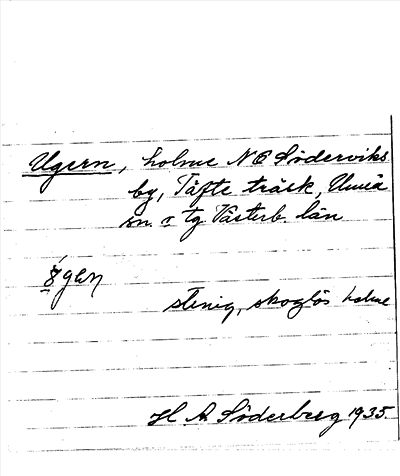 Ugern, holme NO Söderviks
by, Täfte träsk, Umeå
sn. o. tg Västerb. län
stenig, skoglös holme
H A Söderberg 1935